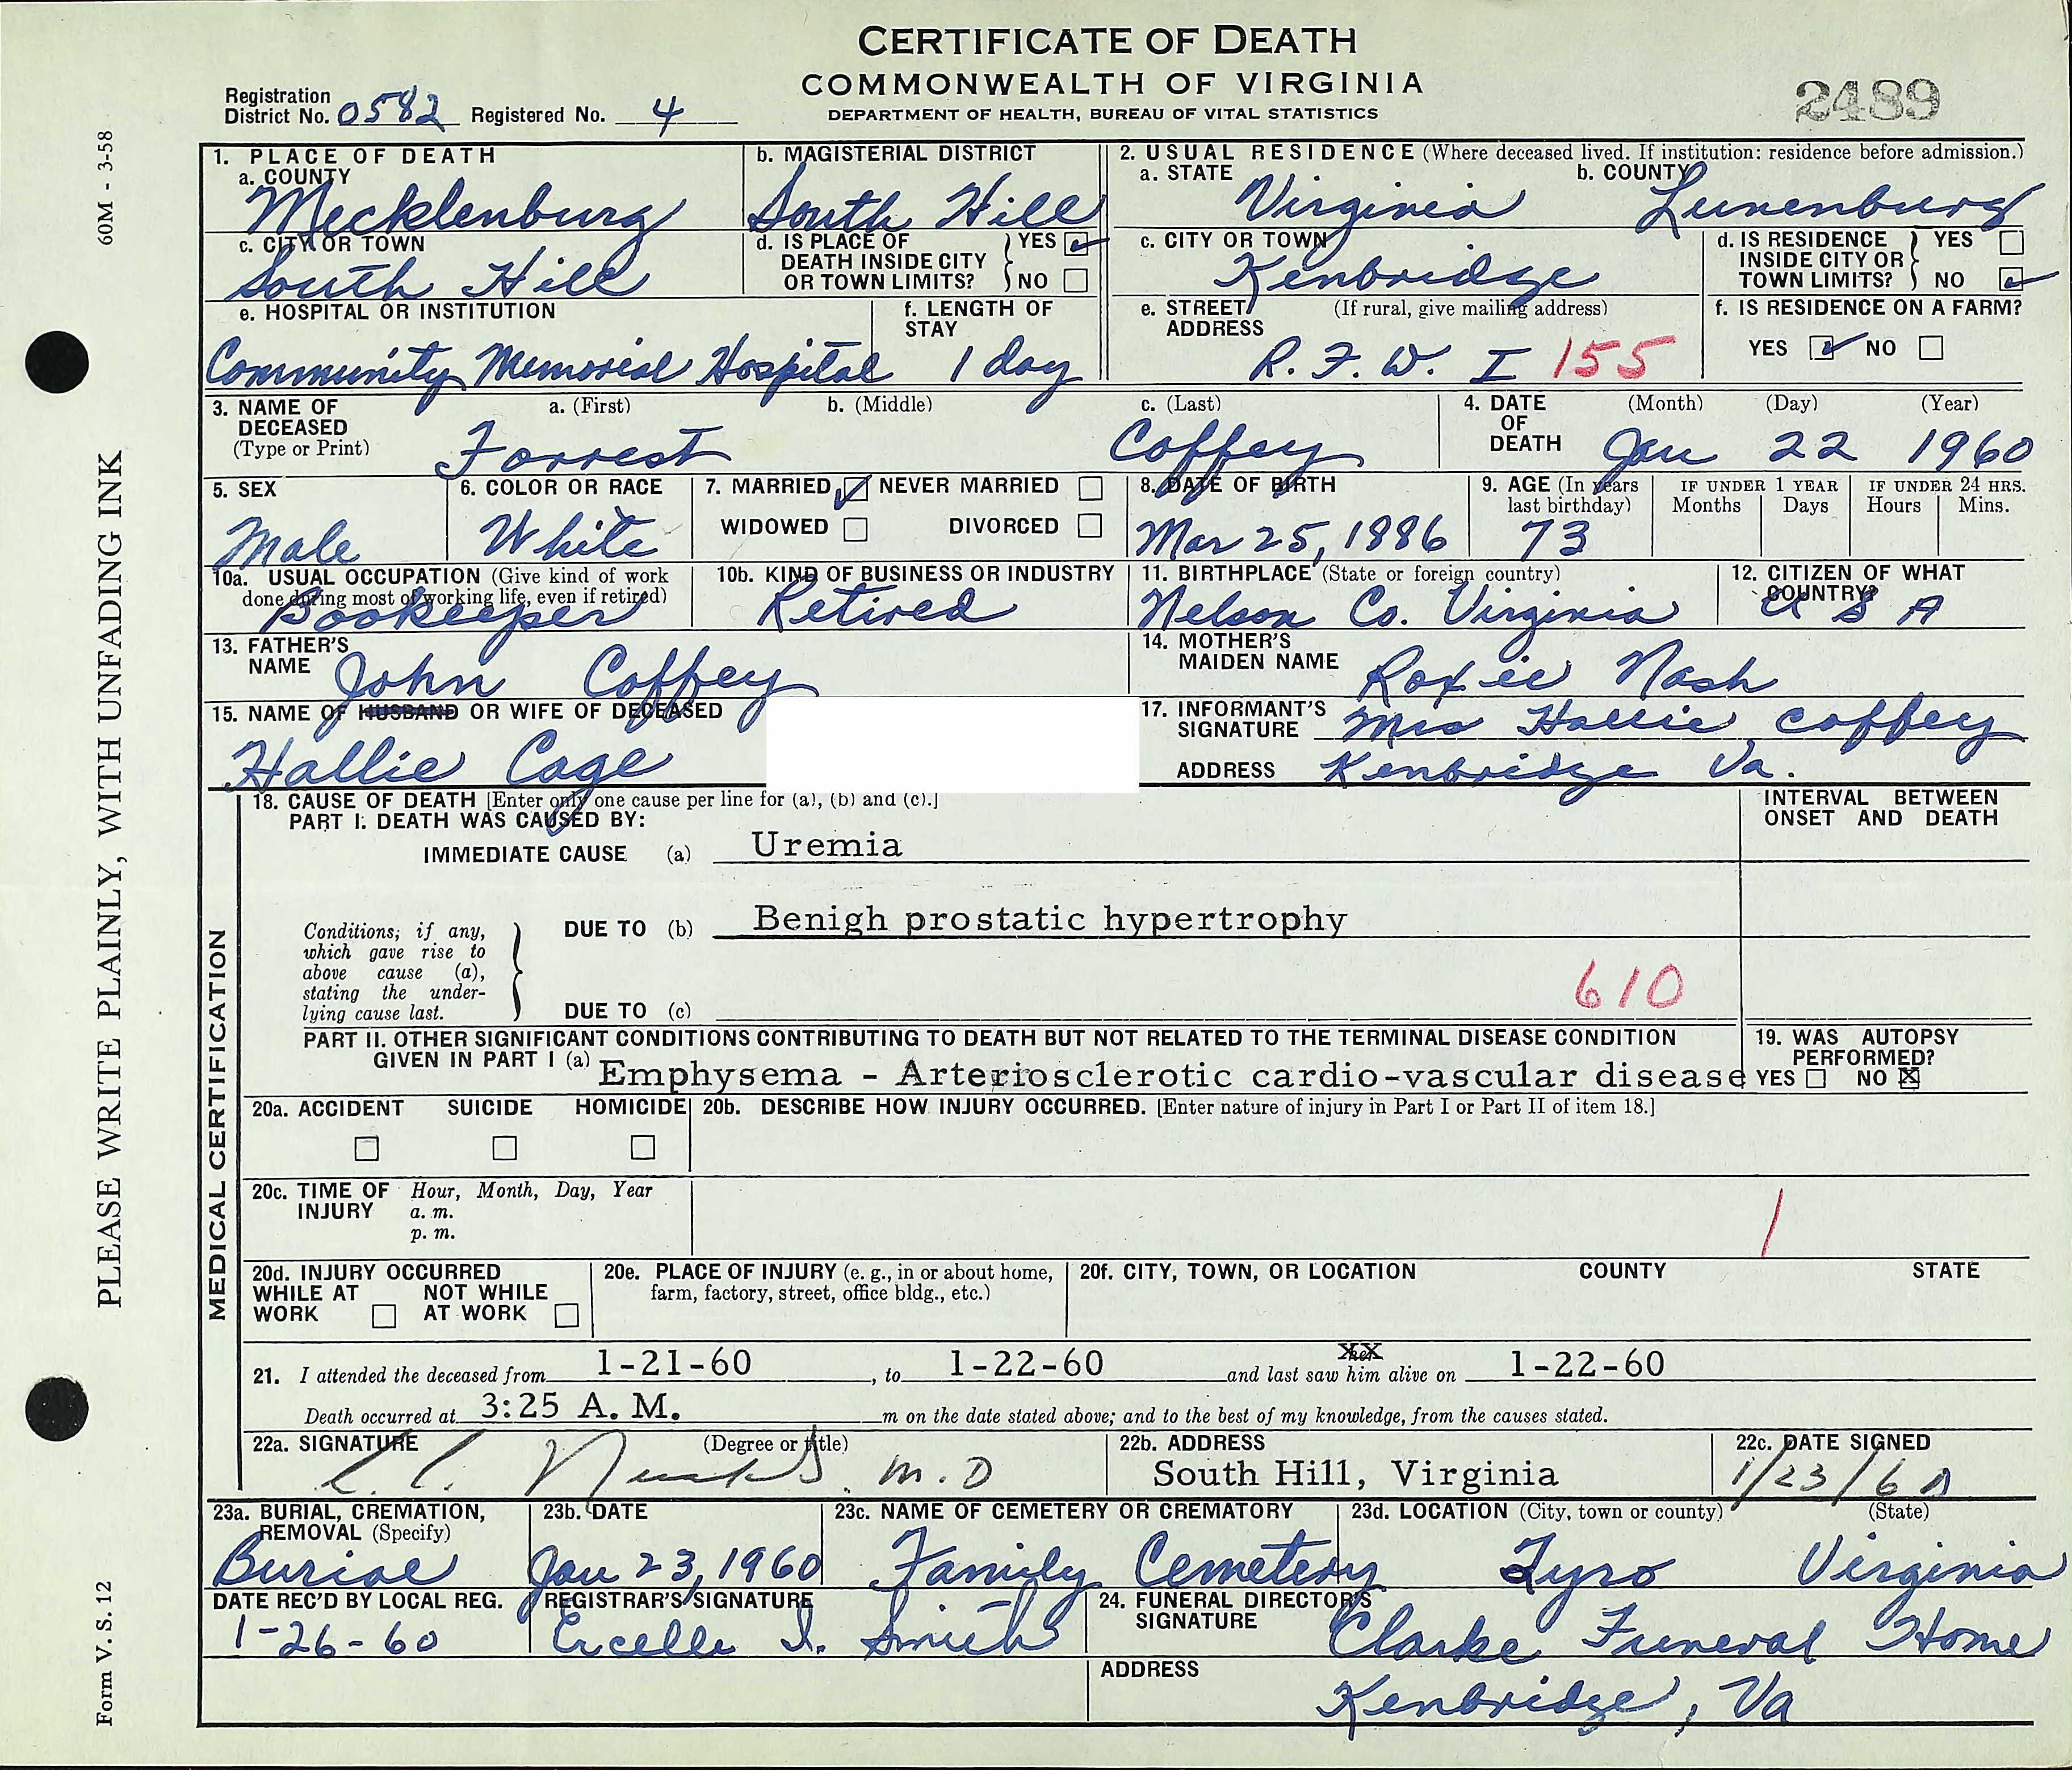 CERTIFICATE OF DEATH
COMMONWEALTH OF VIRGINIA
DEPARTMENT OF HEALTH, BUREAU OF VITAL STATISTICS
2489
Registration District No. 0582 Registered No. 4
60M - 3-58
PLEASE WRITE PLAINLY, WITH UNFADING INK
Form V. S. 12
1. PLACE OF DEATH
a. COUNTY
Mecklenburg
b. MAGISTERIAL DISTRICT
South Hill
2. USUAL RESIDENCE (Where deceased lived. If institution: residence before admission.)
a. STATE b. COUNTY
Virginia Lunenburg
c. CITY OR TOWN
South Hill
d. IS PLACE OF DEATH INSIDE CITY OR TOWN LIMITS? YES NO
c. CITY OR TOWN
Kenbridge
d. IS RESIDENCE INSIDE CITY OR TOWN LIMITS? YES NO
e. HOSPITAL OR INSTITUTION
Community Memorial Hospital
f. LENGTH OF STAY
1 day
e. STREET ADDRESS (If rural, give mailing address)
R. F. W. I 155
f. IS RESIDENCE ON A FARM?
YES NO
3. NAME OF DECEASED (Type or Print)
a. (First) b. (Middle) c. (Last)
Forrest Coffey
4. DATE OF DEATH (Month) (Day) (Year)
Jan 22 1960
5. SEX
Male
6. COLOR OR RACE
White
7. MARRIED NEVER MARRIED
WIDOWED DIVORCED
8. DATE OF BIRTH
Mar 25, 1886
9. AGE (In years last birthday)
73
IF UNDER 1 YEAR
Months Days
IF UNDER 24 HRS.
Hours Mins.
10a. USUAL OCCUPATION (Give kind of work done during most of working life, even if retired)
Bookeeper
10b. KIND OF BUSINESS OR INDUSTRY
Retired
11. BIRTHPLACE (State or foreign country)
Nelson Co. Virginia
12. CITIZEN OF WHAT COUNTRY?
U S A
13. FATHER'S NAME
John Coffey
14. MOTHER'S MAIDEN NAME
Roxie Nash
15. NAME OF HUSBAND OR WIFE OF DECEASED
Hallie Cage
17. INFORMANT'S SIGNATURE Mrs Hallie Coffey
ADDRESS Kenbridge Va.
MEDICAL CERTIFICATION
18. CAUSE OF DEATH [Enter only one cause per line for (a), (b) and (c).]
PART I: DEATH WAS CAUSED BY:
IMMEDIATE CAUSE (a) Uremia
INTERVAL BETWEEN ONSET AND DEATH
Conditions; if any, which gave rise to above cause (a), stating the underlying cause last.
DUE TO (b) Benigh prostatic hypertrophy
610
DUE TO (c)
PART II. OTHER SIGNIFICANT CONDITIONS CONTRIBUTING TO DEATH BUT NOT RELATED TO THE TERMINAL DISEASE CONDITION
GIVEN IN PART I (a) Emphysema - Arteriosclerotic cardio-vascular disease
19. WAS AUTOPSY PERFORMED?
YES NO X
20a. ACCIDENT SUICIDE HOMICIDE
20b. DESCRIBE HOW INJURY OCCURRED. [Enter nature of injury in Part I or Part II of item 18.]
20c. TIME OF INJURY Hour, Month, Day, Year
a. m.
p. m.
1
20d. INJURY OCCURRED
WHILE AT WORK NOT WHILE AT WORK
20e. PLACE OF INJURY (e. g., in or about home, farm, factory, street, office bldg., etc.)
20f. CITY, TOWN, OR LOCATION COUNTY STATE
21. I attended the deceased from 1-21-60, to 1-22-60 and last saw him alive on 1-22-60
Death occurred at 3:25 A. M. m on the date stated above; and to the best of my knowledge, from the causes stated.
22a. SIGNATURE (Degree or title)
M. D
22b. ADDRESS
South Hill, Virginia
22c. DATE SIGNED
1/23/60
23a. BURIAL, CREMATION, REMOVAL (Specify)
Burial
23b. DATE
Jan 23, 1960
23c. NAME OF CEMETERY OR CREMATORY
Family Cemetery
23d. LOCATION (City, town or county) (State)
Tyro Virginia
DATE REC'D BY LOCAL REG.
1-26-60
REGISTRAR'S SIGNATURE
Smith
24. FUNERAL DIRECTOR'S SIGNATURE
Clarke Funeral Home
ADDRESS
Kenbridge, Va